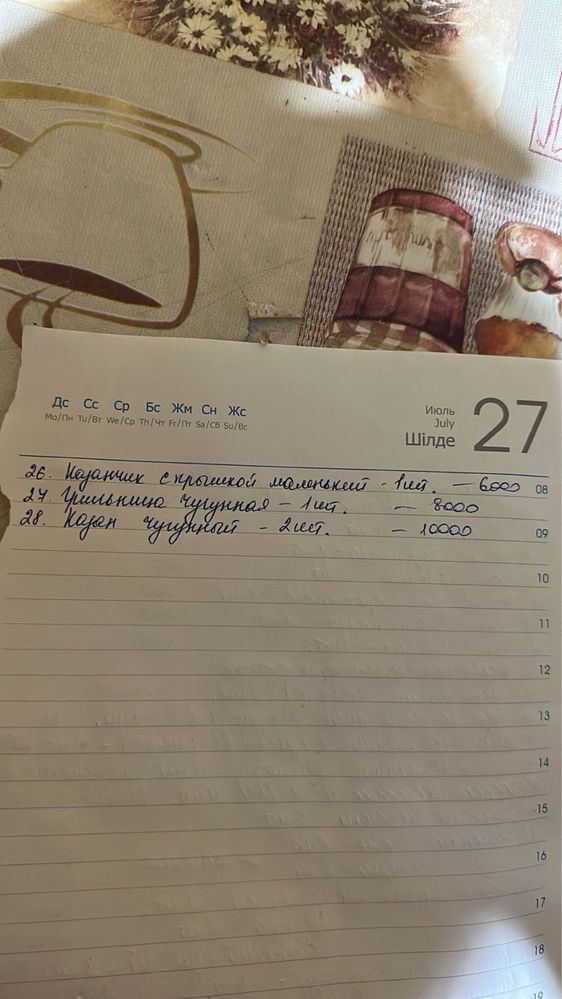 Июль
July
Шілде
27
Дс Сс Ср Бс Жм Сн Жс
Mo/Пн Tu/Вт We/Ср Th/Чт Fr/Пт Sa/Сб Su/Вс
26. Казанчик с крышкой маленький - 1 шт. — 6000
08
27. Грильница чугунная - 1 шт. — 8000
28. Казан чугунный - 2 шт. — 10000
09
10
11
12
13
14
15
16
17
18
19